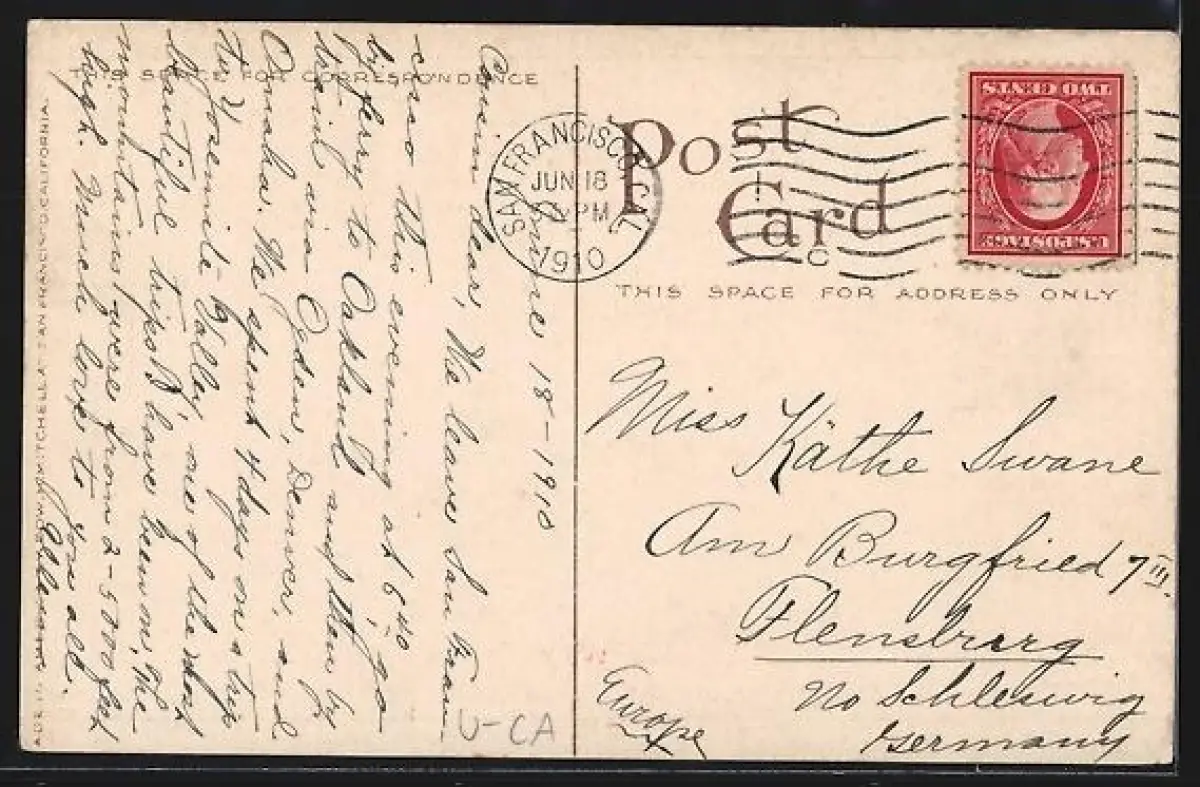 THIS SPACE FOR CORRESPONDENCE
June 18-1910
Cousin dear, We leave San Fran-
cisco this evening at 6,40 go
by ferry to Oakland and then by
train via Ogden, Denver, and
Omaha. We spent 4 days on a trip
to Yosemite Valley, one of the most
beautiful trips I have been on, The
mountains were from 2-5000 feet
high. Much love to you all.
MITCHELL AT SAN FRANCISCO CALIFORNIA.
U-CA
SAN FRANCISCO, CAL.
JUN 18
PM
1910
Post
Card
C
TWO CENTS
U.S. POSTAGE
THIS SPACE FOR ADDRESS ONLY
Miss Käthe Swane
Am Burgfried 7 III.
Flensburg
No Schleswig
Germany
Europe